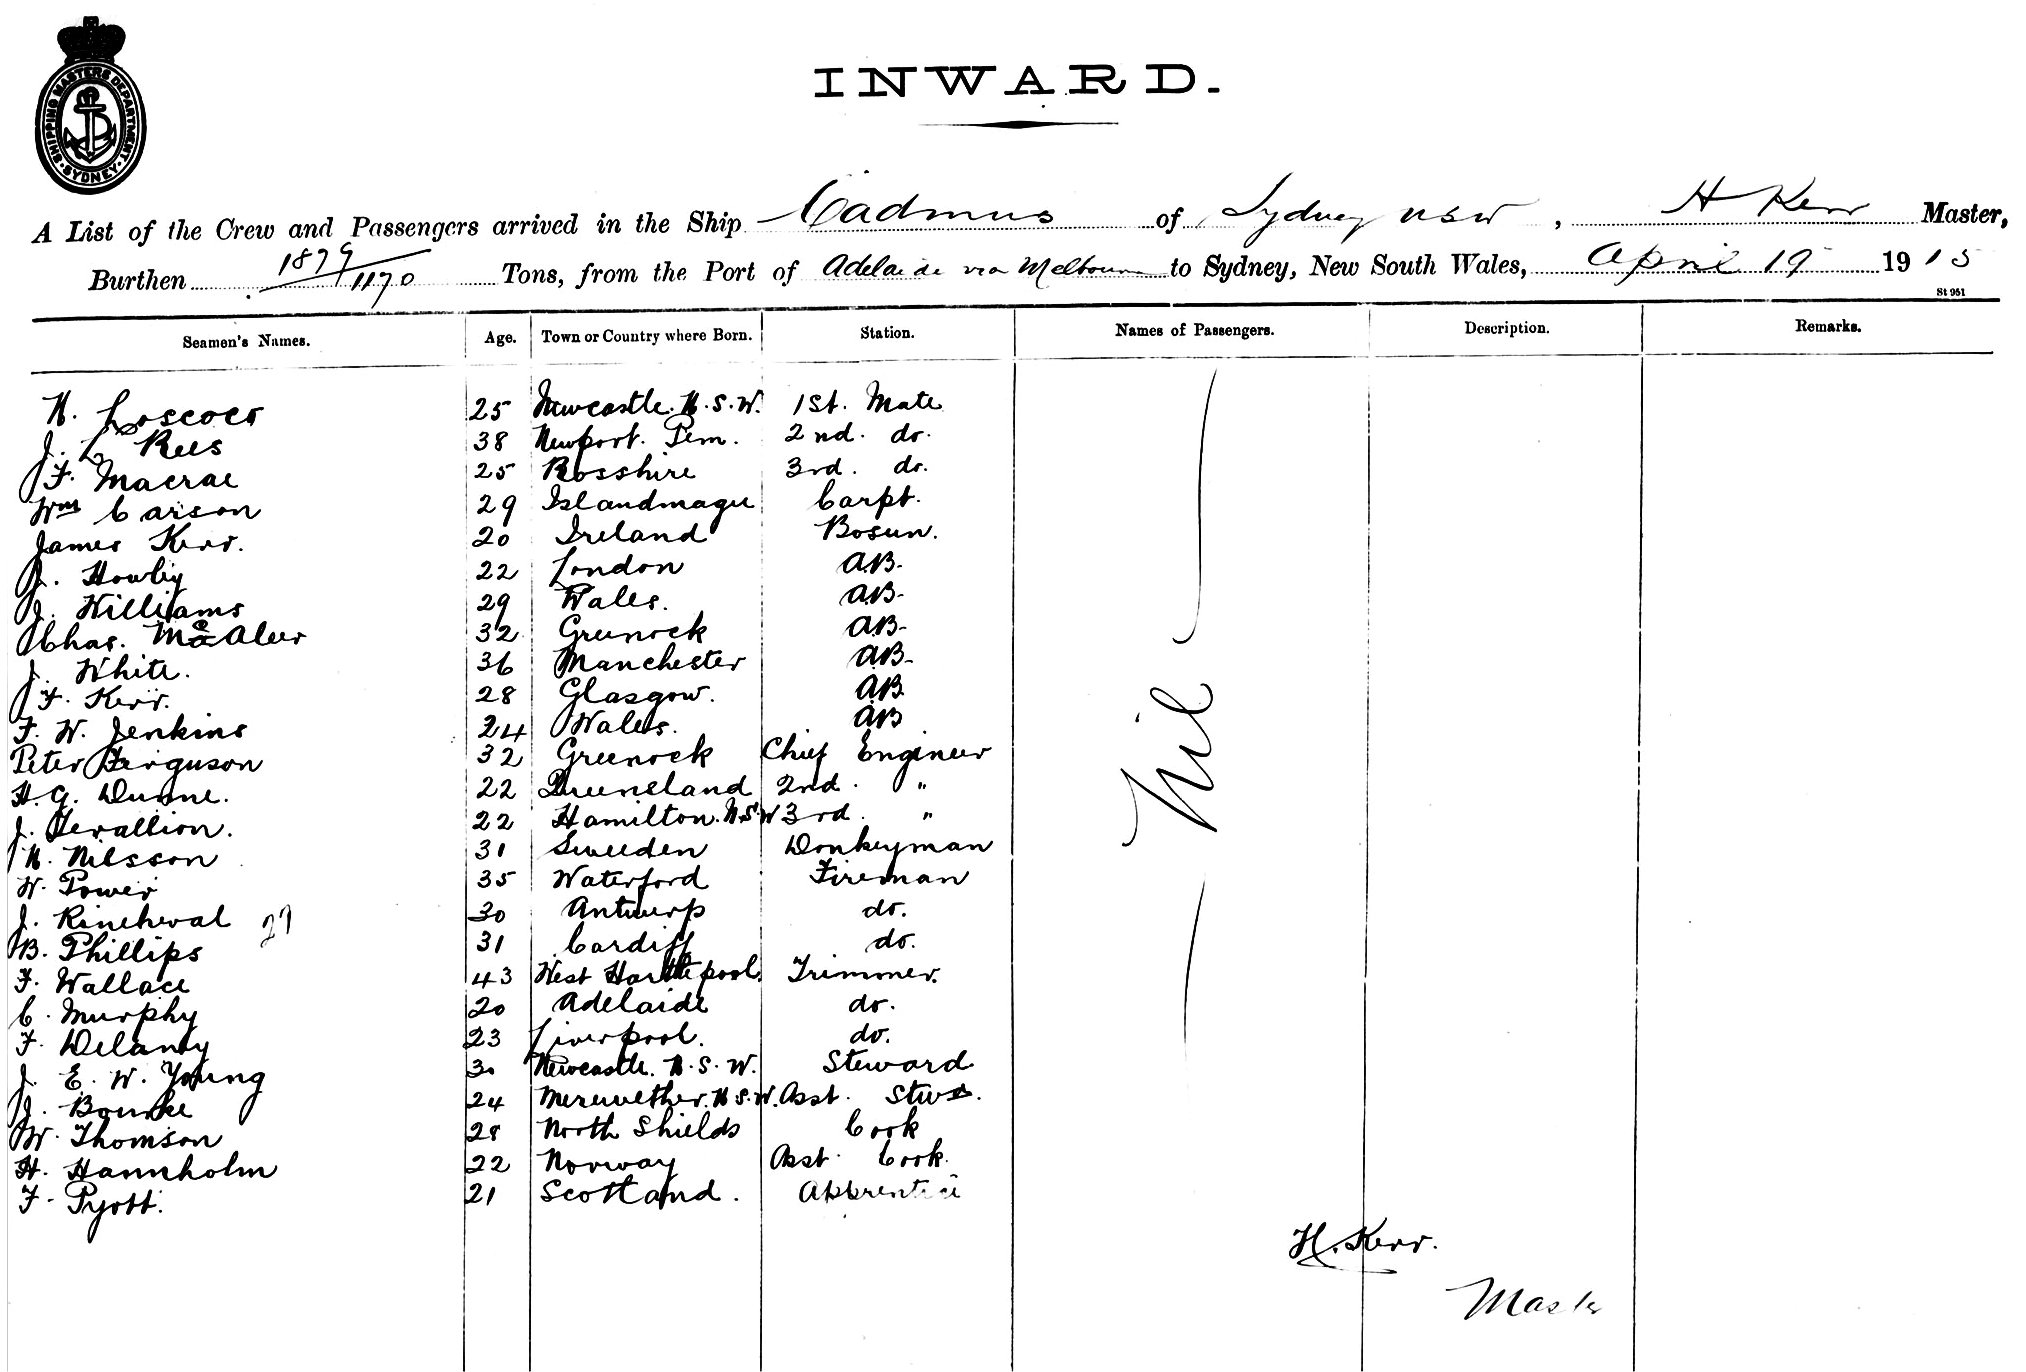 SHIPPING MASTERS DEPARTMENT
SYDNEY
INWARD.
A List of the Crew and Passengers arrived in the Ship Cadmus of Sydney NSW, H Kerr Master,
Burthen 1879/1170 Tons, from the Port of Adelaide via Melbourne to Sydney, New South Wales, April 19 1915
St 951
Seamen's Names. Age. Town or Country where Born. Station. Names of Passengers. Description. Remarks.
N. Loscoes 25 Newcastle. N.S.W. 1st. Mate
J. L Rees 38 Newport. Pem. 2nd. do.
J. F. Macrae 25 Rosshire 3rd. do.
Wm Carson 29 Islandmagee Carpt.
James Kerr. 20 Ireland Bosun.
J. Howley 22 London AB.
J. Williams 29 Wales. AB.
Chas. McAleer 32 Greenock AB.
J. White. 36 Manchester AB.
J. F. Kerr. 28 Glasgow. AB
F. W. Jenkins 24 Wales. AB
Peter Ferguson 32 Greenock Chief Engineer
H. G. Dunne. 22 Queensland 2nd. "
J. Terallion. 22 Hamilton. N.S.W 3rd. "
N. Nilsson 31 Sweeden Donkeyman
W. Power 35 Waterford Fireman
J. Rincheval 29 30 Antwerp do.
B. Phillips 31 Cardiff do.
F. Wallace 43 West Hartlepool. Trimmer.
C. Murphy 20 Adelaide do.
F. Delanty 23 Liverpool. do.
J. E. W. Young 30 Newcastle. N.S.W. Steward
J. Bourke 24 Merewether. N.S.W. Asst. Stwd.
W. Thomson 28 North Shields Cook
H. Hannholm 22 Norway Asst Cook.
F. Pyott. 21 Scotland. Apprentice
Nil
H. Kerr.
Master